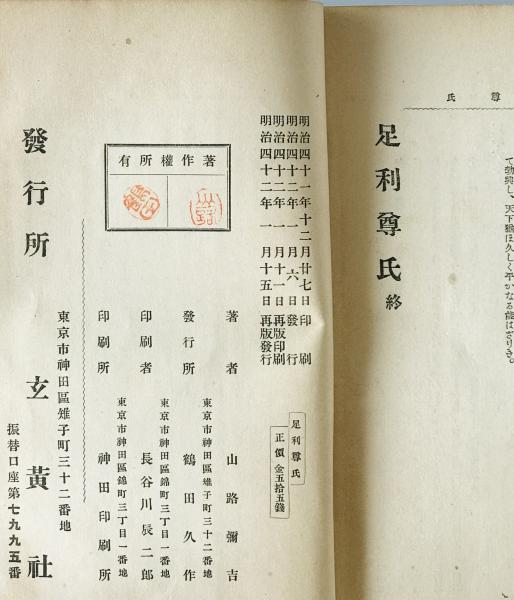 尊氏
て勃興し、天下猶ほ久しく平かなる能はざりき。
足利尊氏終
明治四十一年十二月廿七日印刷
明治四十二年一月六日發行
明治四十二年一月十一日再版印刷
明治四十二年一月十五日再版發行
著作權所有
足利尊氏
正價金五拾五錢
著者 山路彌吉
東京市神田區雉子町三十二番地
發行所 鶴田久作
東京市神田區錦町三丁目一番地
印刷者 長谷川辰二郎
東京市神田區錦町三丁目一番地
印刷所 神田印刷所
東京市神田區雉子町三十二番地
發行所 玄黄社
振替口座第七九九五番